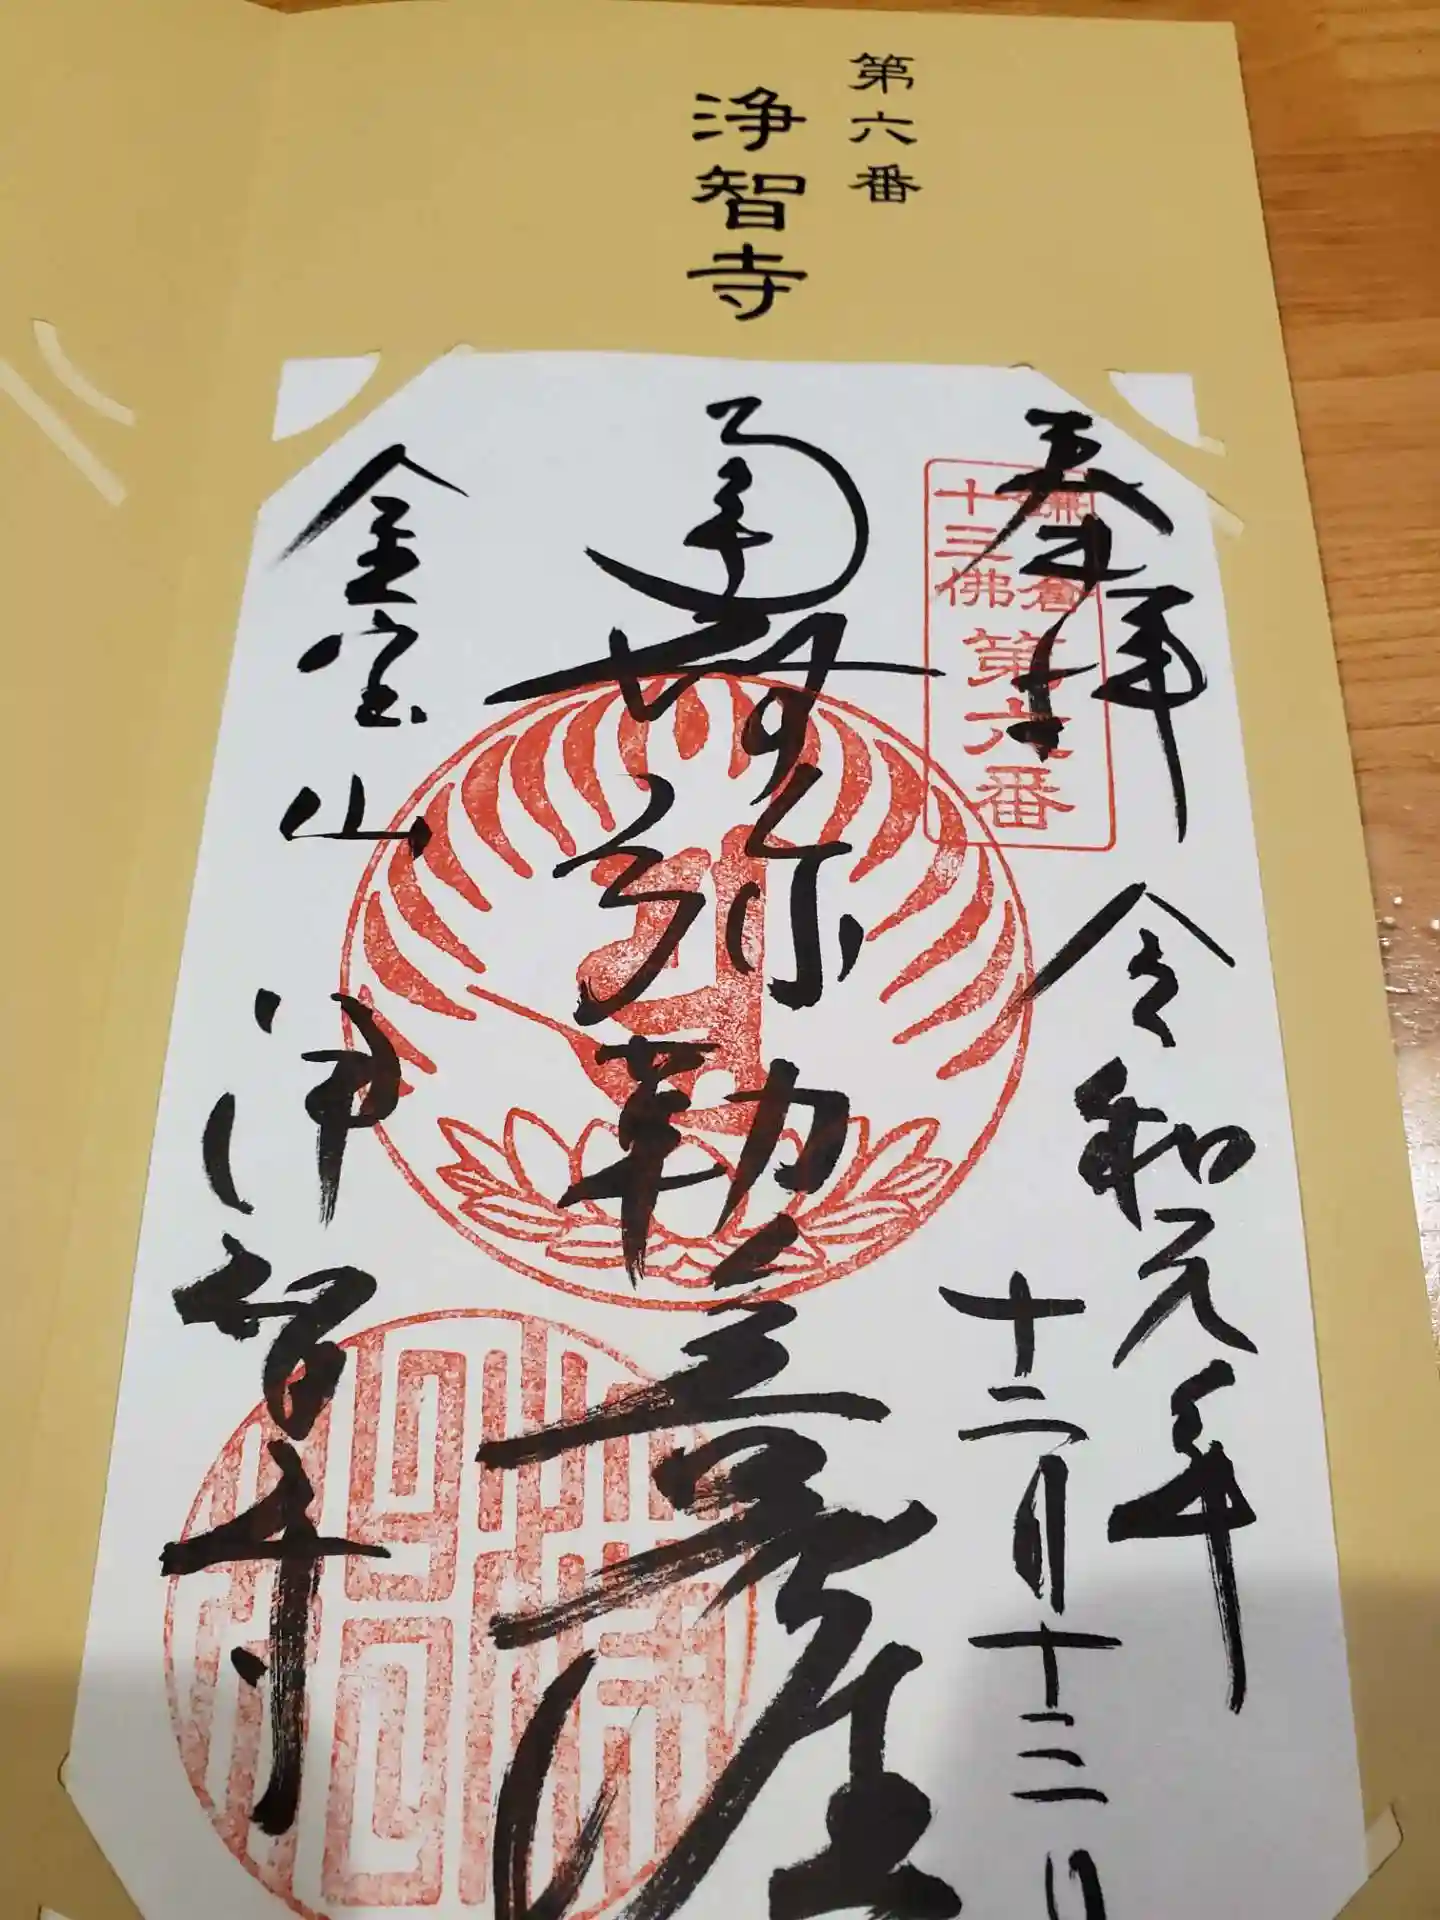 第六番
浄智寺
奉拝
鎌倉
十三佛
第六番
令和元年
十二月十二日
弥勒菩薩
金宝山
浄智寺